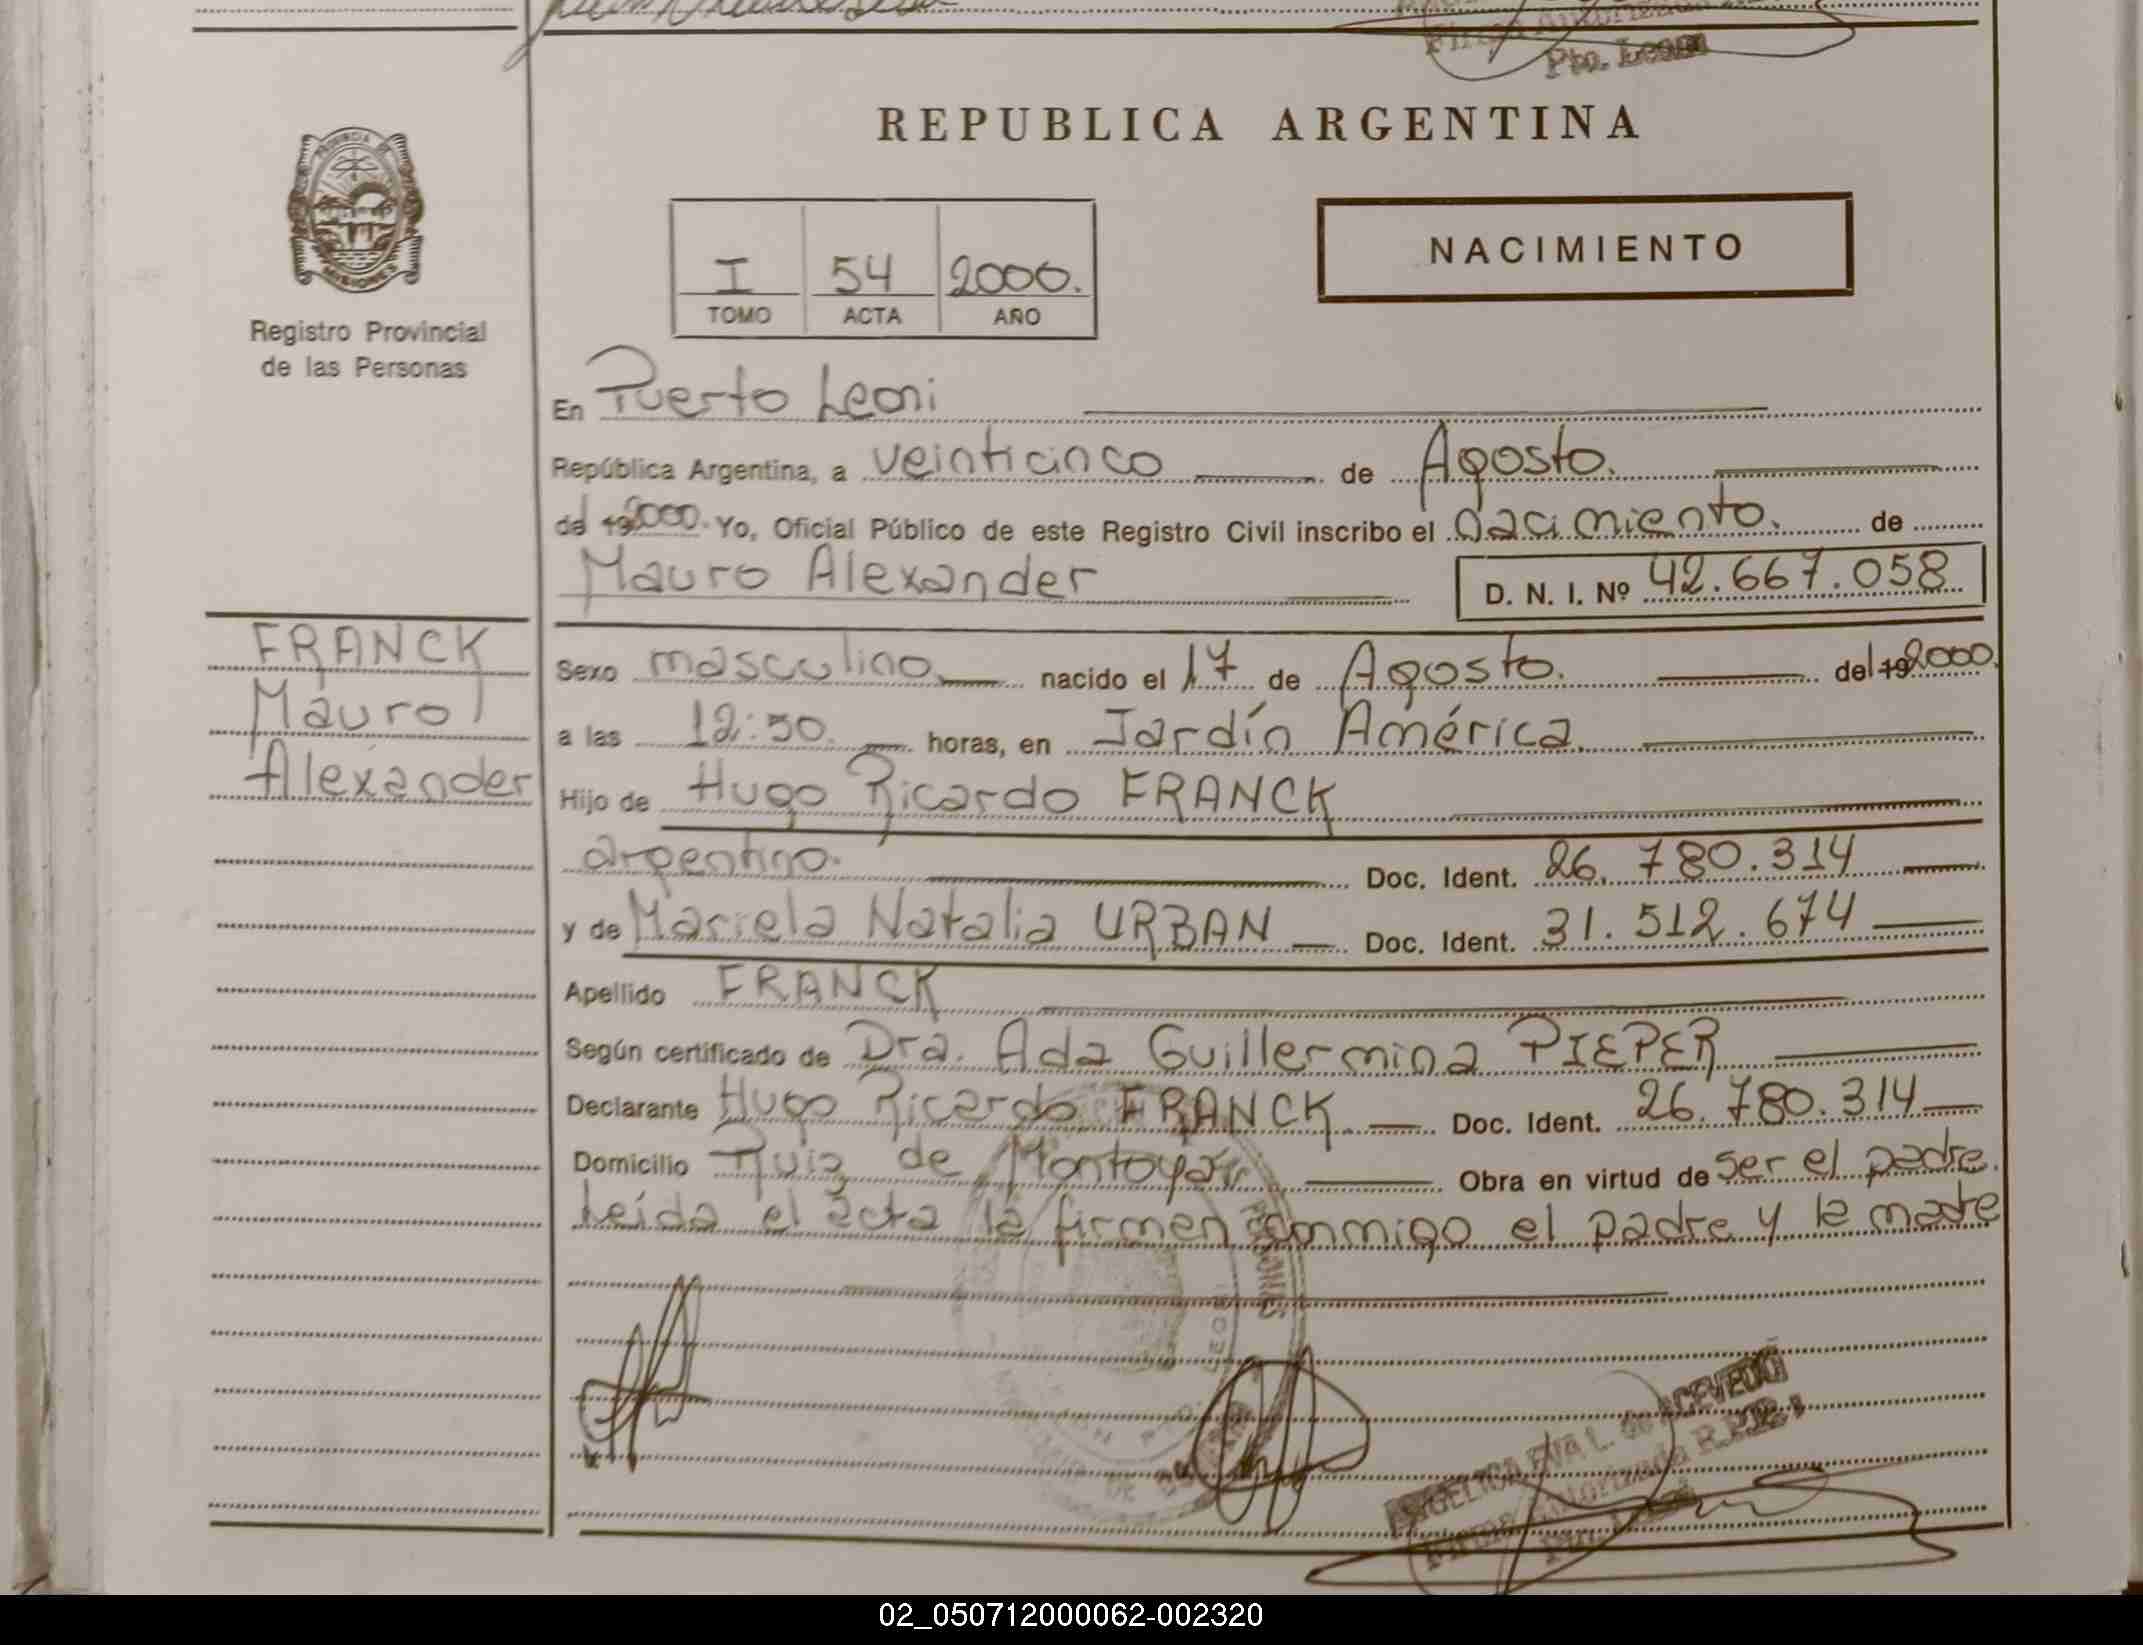 Pto. Leoni
PROVINCIA DE
MISIONES
Registro Provincial
de las Personas
REPUBLICA ARGENTINA
I 54 2000.
TOMO ACTA AÑO
NACIMIENTO
En Puerto Leoni
República Argentina, a veinticinco de Agosto.
del 192000. Yo, Oficial Público de este Registro Civil inscribo el Nacimiento. de
Mauro Alexander D. N. I. Nº 42.667.058
FRANCK
Mauro
Alexander
Sexo masculino. nacido el 17 de Agosto. del 192000.
a las 12:50. horas, en Jardín América.
Hijo de Hugo Ricardo FRANCK
argentino. Doc. Ident. 26.780.314
y de Mariela Natalia URBAN Doc. Ident. 31.512.674
Apellido FRANCK
Según certificado de Dra. Ada Guillermina PIEPER
Declarante Hugo Ricardo FRANCK. Doc. Ident. 26.780.314
Domicilio Ruiz de Montoya. Obra en virtud de ser el padre.
Leída el acta la firman conmigo el padre y la madre
ANGELICA EVA L. de ACEVEDO
Firma Autorizada R.P.P.
Pto. Leoni
02_050712000062-002320